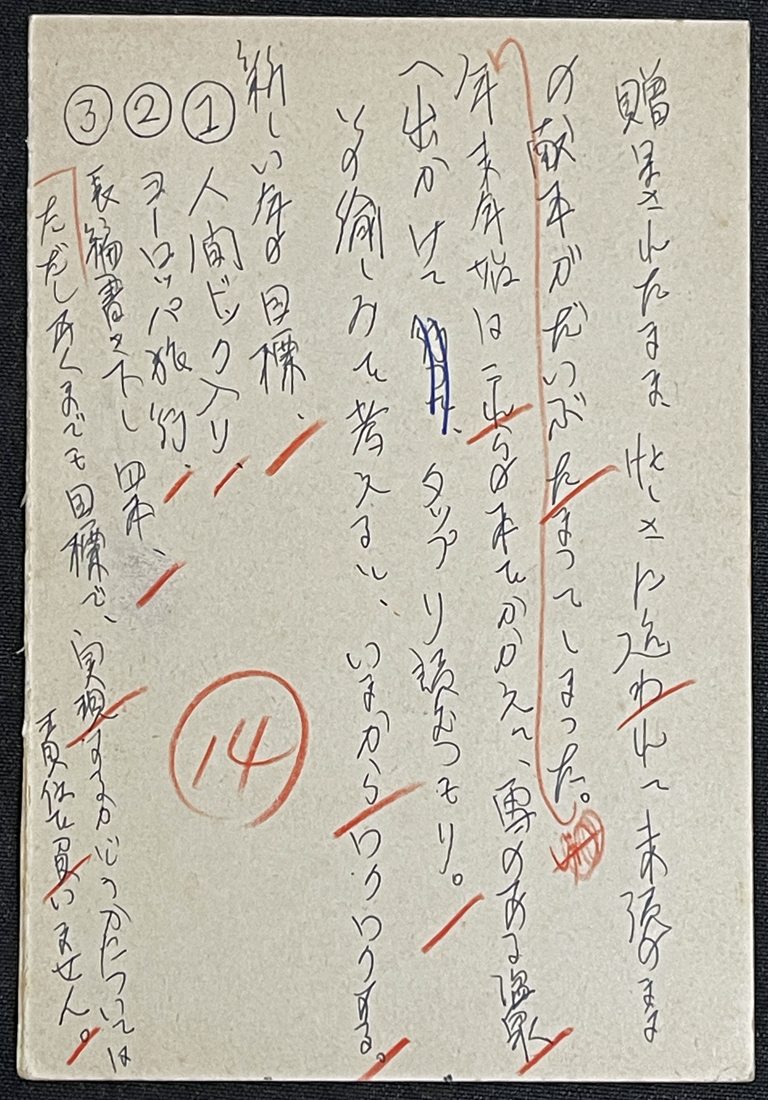 贈呈されたまま、忙しさに追われて未読のまま
の献本がだいぶたまってしまった。
年末年始はこれらの本をかかえて、雪のある温泉
へ出かけて、タップリ読むつもり。
その愉しみを考えると、いまからワクワクする。
新しい年の目標、
① 人間ドック入り、
② ヨーロッパ旅行、
③ 長篇書き下し四本、
ただしあくまでも目標で、実現するかどうかについては
責任を負いません。
14